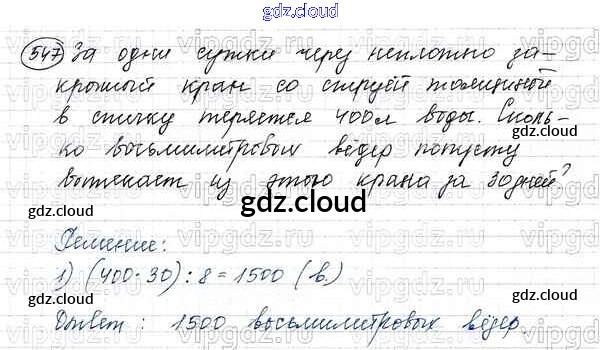 gdz.cloud
547 За одни сутки через неплотно за-
крытый кран со струёй толщиной
в спичку теряется 400 л воды. Сколь-
ко восьмилитровых вёдер попусту
вытекает из этого крана за 30 дней?
gdz.cloud
gdz.cloud
gdz.cloud
gdz.cloud
Решение:
1) (400·30):8=1500 (в.)
gdz.cloud
Ответ: 1500 восьмилитровых вёдер.